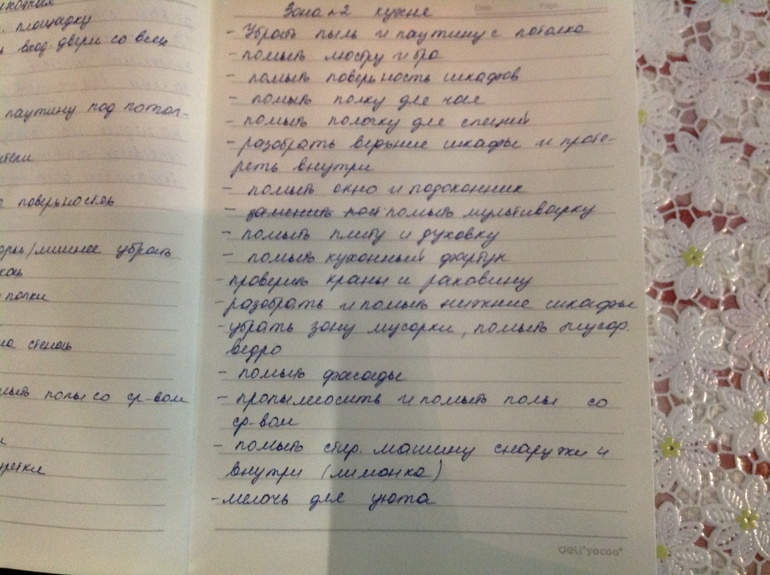 площадку
вход. двери со всех
паутину под потол-
поверностей
/лишнее убрать
полки
на стенах
мыть полы со ср-вом
Зона №2 кухня
Date Page
- Убрать пыль и паутину с потолка
- помыть люстру и бра
- помыть поверность шкафов
- помыть полку для чая
- помыть полочку для специй
- разобрать верхние шкафы и проте-
реть внутри
- помыть окно и подоконник
- заменить пост помыть мультиварку
- помыть плиту и духовку
- помыть кухонный фартук
- проверить краны и раковину
- разобрать и помыть нижние шкафы
- убрать зону мусорки, помыть мусор.
ведро
- помыть фасады
- пропылесосить и помыть полы со
ср-вом
- помыть стир. машину снаружи и
внутри (лимонка)
- мелочь для уюта
deli yocoo